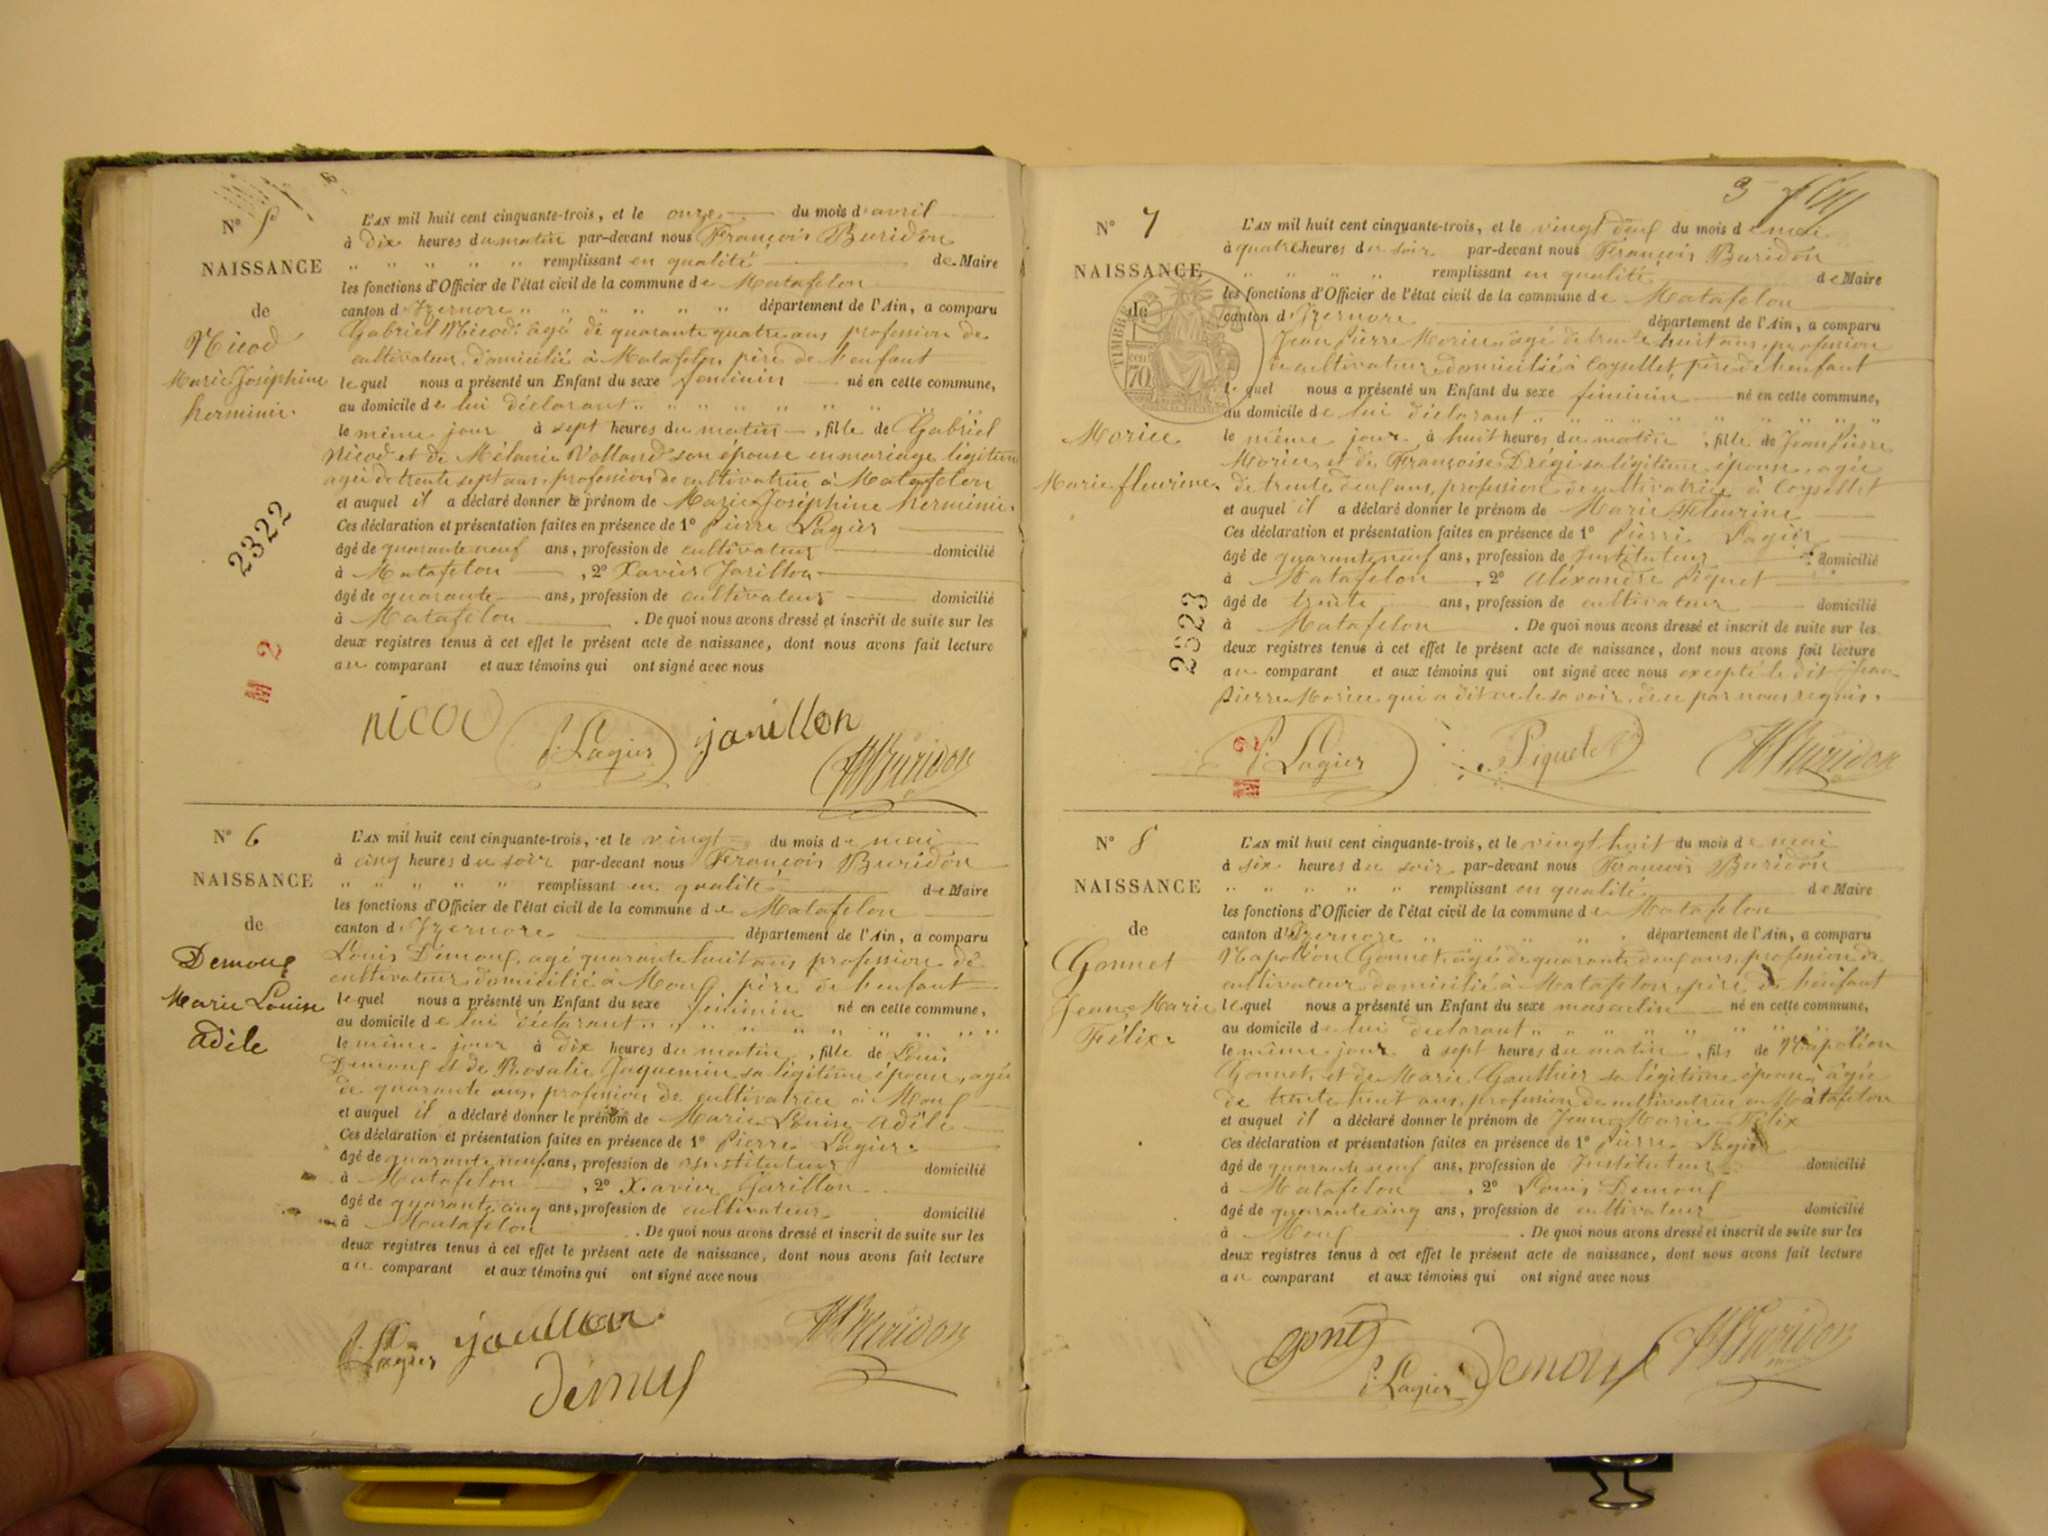 N° 5
NAISSANCE
de
Nicod
Marie Joséphine
herminie.
2322
L'AN mil huit cent cinquante-trois, et le onze du mois d'avril
à dix heures du matin par-devant nous François Buridon
" " " " " remplissant en qualité de Maire
les fonctions d'Officier de l'état civil de la commune de Matafelon
canton d'Izernore " " " " " " département de l'Ain, a comparu
Gabriel Nicod âgé de quarante quatre ans profession de
cultivateur, domicilié à Matafelon, père de l'enfant
lequel nous a présenté un Enfant du sexe feminin né en cette commune,
au domicile de lui déclarant " " " " " " " "
le même jour à sept heures du matin, fille de Gabriel
Nicod et de Mélanie Volland son épouse en mariage légitime
agée de trente sept ans, profession de cultivatrice à Matafelon
et auquel il a déclaré donner le prénom de Marie Joséphine herminie.
Ces déclaration et présentation faites en présence de 1° Pierre Lagier
âgé de quarante neuf ans, profession de cultivateur domicilié
à Matafelon, 2° Xavier Jarillon
âgé de quarante ans, profession de cultivateur domicilié
à Matafelon. De quoi nous avons dressé et inscrit de suite sur les
deux registres tenus à cet effet le présent acte de naissance, dont nous avons fait lecture
au comparant et aux témoins qui ont signé avec nous
nicod P. Lagier jarillon Buridon
N° 6
NAISSANCE
de
Demouf
Marie Louise
adèle
L'AN mil huit cent cinquante-trois, et le vingt du mois de mai
à cinq heures du soir par-devant nous François Buridon
" " " " " remplissant en qualité de Maire
les fonctions d'Officier de l'état civil de la commune de Matafelon
canton d'Izernore département de l'Ain, a comparu
Louis Démouf, agé quarante huit ans profession de
cultivateur domicilié à père de l'enfant
lequel nous a présenté un Enfant du sexe féminin né en cette commune,
au domicile de lui déclarant " " " " " " " " "
le même jour à dix heures du matin, fille de Louis
Demouf et de Rosalie Jaquemin sa légitime épouse, agée
de quarante ans, profession de cultivatrice à
et auquel il a déclaré donner le prénom de Marie Louise Adèle
Ces déclaration et présentation faites en présence de 1° Pierre Lagier
âgé de quarante neuf ans, profession de instituteur domicilié
à Matafelon, 2° Xavier Jarillon
âgé de quarante cinq ans, profession de cultivateur domicilié
à Matafelon. De quoi nous avons dressé et inscrit de suite sur les
deux registres tenus à cet effet le présent acte de naissance, dont nous avons fait lecture
au comparant et aux témoins qui ont signé avec nous
P. Lagier jarillon Buridon
démouf
3
N° 7
NAISSANCE
de
TIMBRE
70
Morice
Marie fleurine.
2323
L'AN mil huit cent cinquante-trois, et le vingt deux du mois de mai
à quatre heures du soir par-devant nous François Buridon
" " " " remplissant en qualité de Maire
les fonctions d'Officier de l'état civil de la commune de Matafelon
canton d'Izernore département de l'Ain, a comparu
Jean Pierre Morice âgé de trente huit ans, profession
de cultivateur domicilié à Coysellet, père de l'enfant
lequel nous a présenté un Enfant du sexe féminin né en cette commune,
au domicile de lui déclarant " " " " " " "
le même jour à huit heures du matin, fille de Jean Pierre
Morice et de Françoise sa légitime épouse, agée
de trente deux ans, profession de cultivatrice à Coysellet
et auquel il a déclaré donner le prénom de Marie Fleurine
Ces déclaration et présentation faites en présence de 1° Pierre Lagier
âgé de quarante neuf ans, profession de Instituteur domicilié
à Matafelon, 2° Alexandre Piquet
âgé de trente ans, profession de cultivateur domicilié
à Matafelon. De quoi nous avons dressé et inscrit de suite sur les
deux registres tenus à cet effet le présent acte de naissance, dont nous avons fait lecture
au comparant et aux témoins qui ont signé avec nous excepté le dit Jean
Pierre Morice qui a dit ne le savoir, de ce par nous requis.
P. Lagier Piquet Buridon
N° 8
NAISSANCE
de
Gonnet
Jean Marie
Félix
L'AN mil huit cent cinquante-trois, et le vingt huit du mois de mai
à six heures du soir par-devant nous François Buridon
" " " " " remplissant en qualité de Maire
les fonctions d'Officier de l'état civil de la commune de Matafelon
canton d'Izernore " " " " département de l'Ain, a comparu
Napoléon Gonnet, agé de quarante deux ans, profession de
cultivateur domicilié à Matafelon, père de l'enfant
lequel nous a présenté un Enfant du sexe masculin né en cette commune,
au domicile de lui déclarant " " " " " " "
le même jour à sept heures du matin, fils de Napoléon
Gonnet, et de Marie Gauthier sa légitime épouse, agée
de trente huit ans, profession de cultivatrice à Matafelon
et auquel il a déclaré donner le prénom de Jean Marie Félix
Ces déclaration et présentation faites en présence de 1° Pierre Lagier
âgé de quarante neuf ans, profession de Instituteur domicilié
à Matafelon, 2° Louis Demouf
âgé de quarante cinq ans, profession de cultivateur domicilié
à . De quoi nous avons dressé et inscrit de suite sur les
deux registres tenus à cet effet le présent acte de naissance, dont nous avons fait lecture
au comparant et aux témoins qui ont signé avec nous
P. Lagier Demouf Buridon